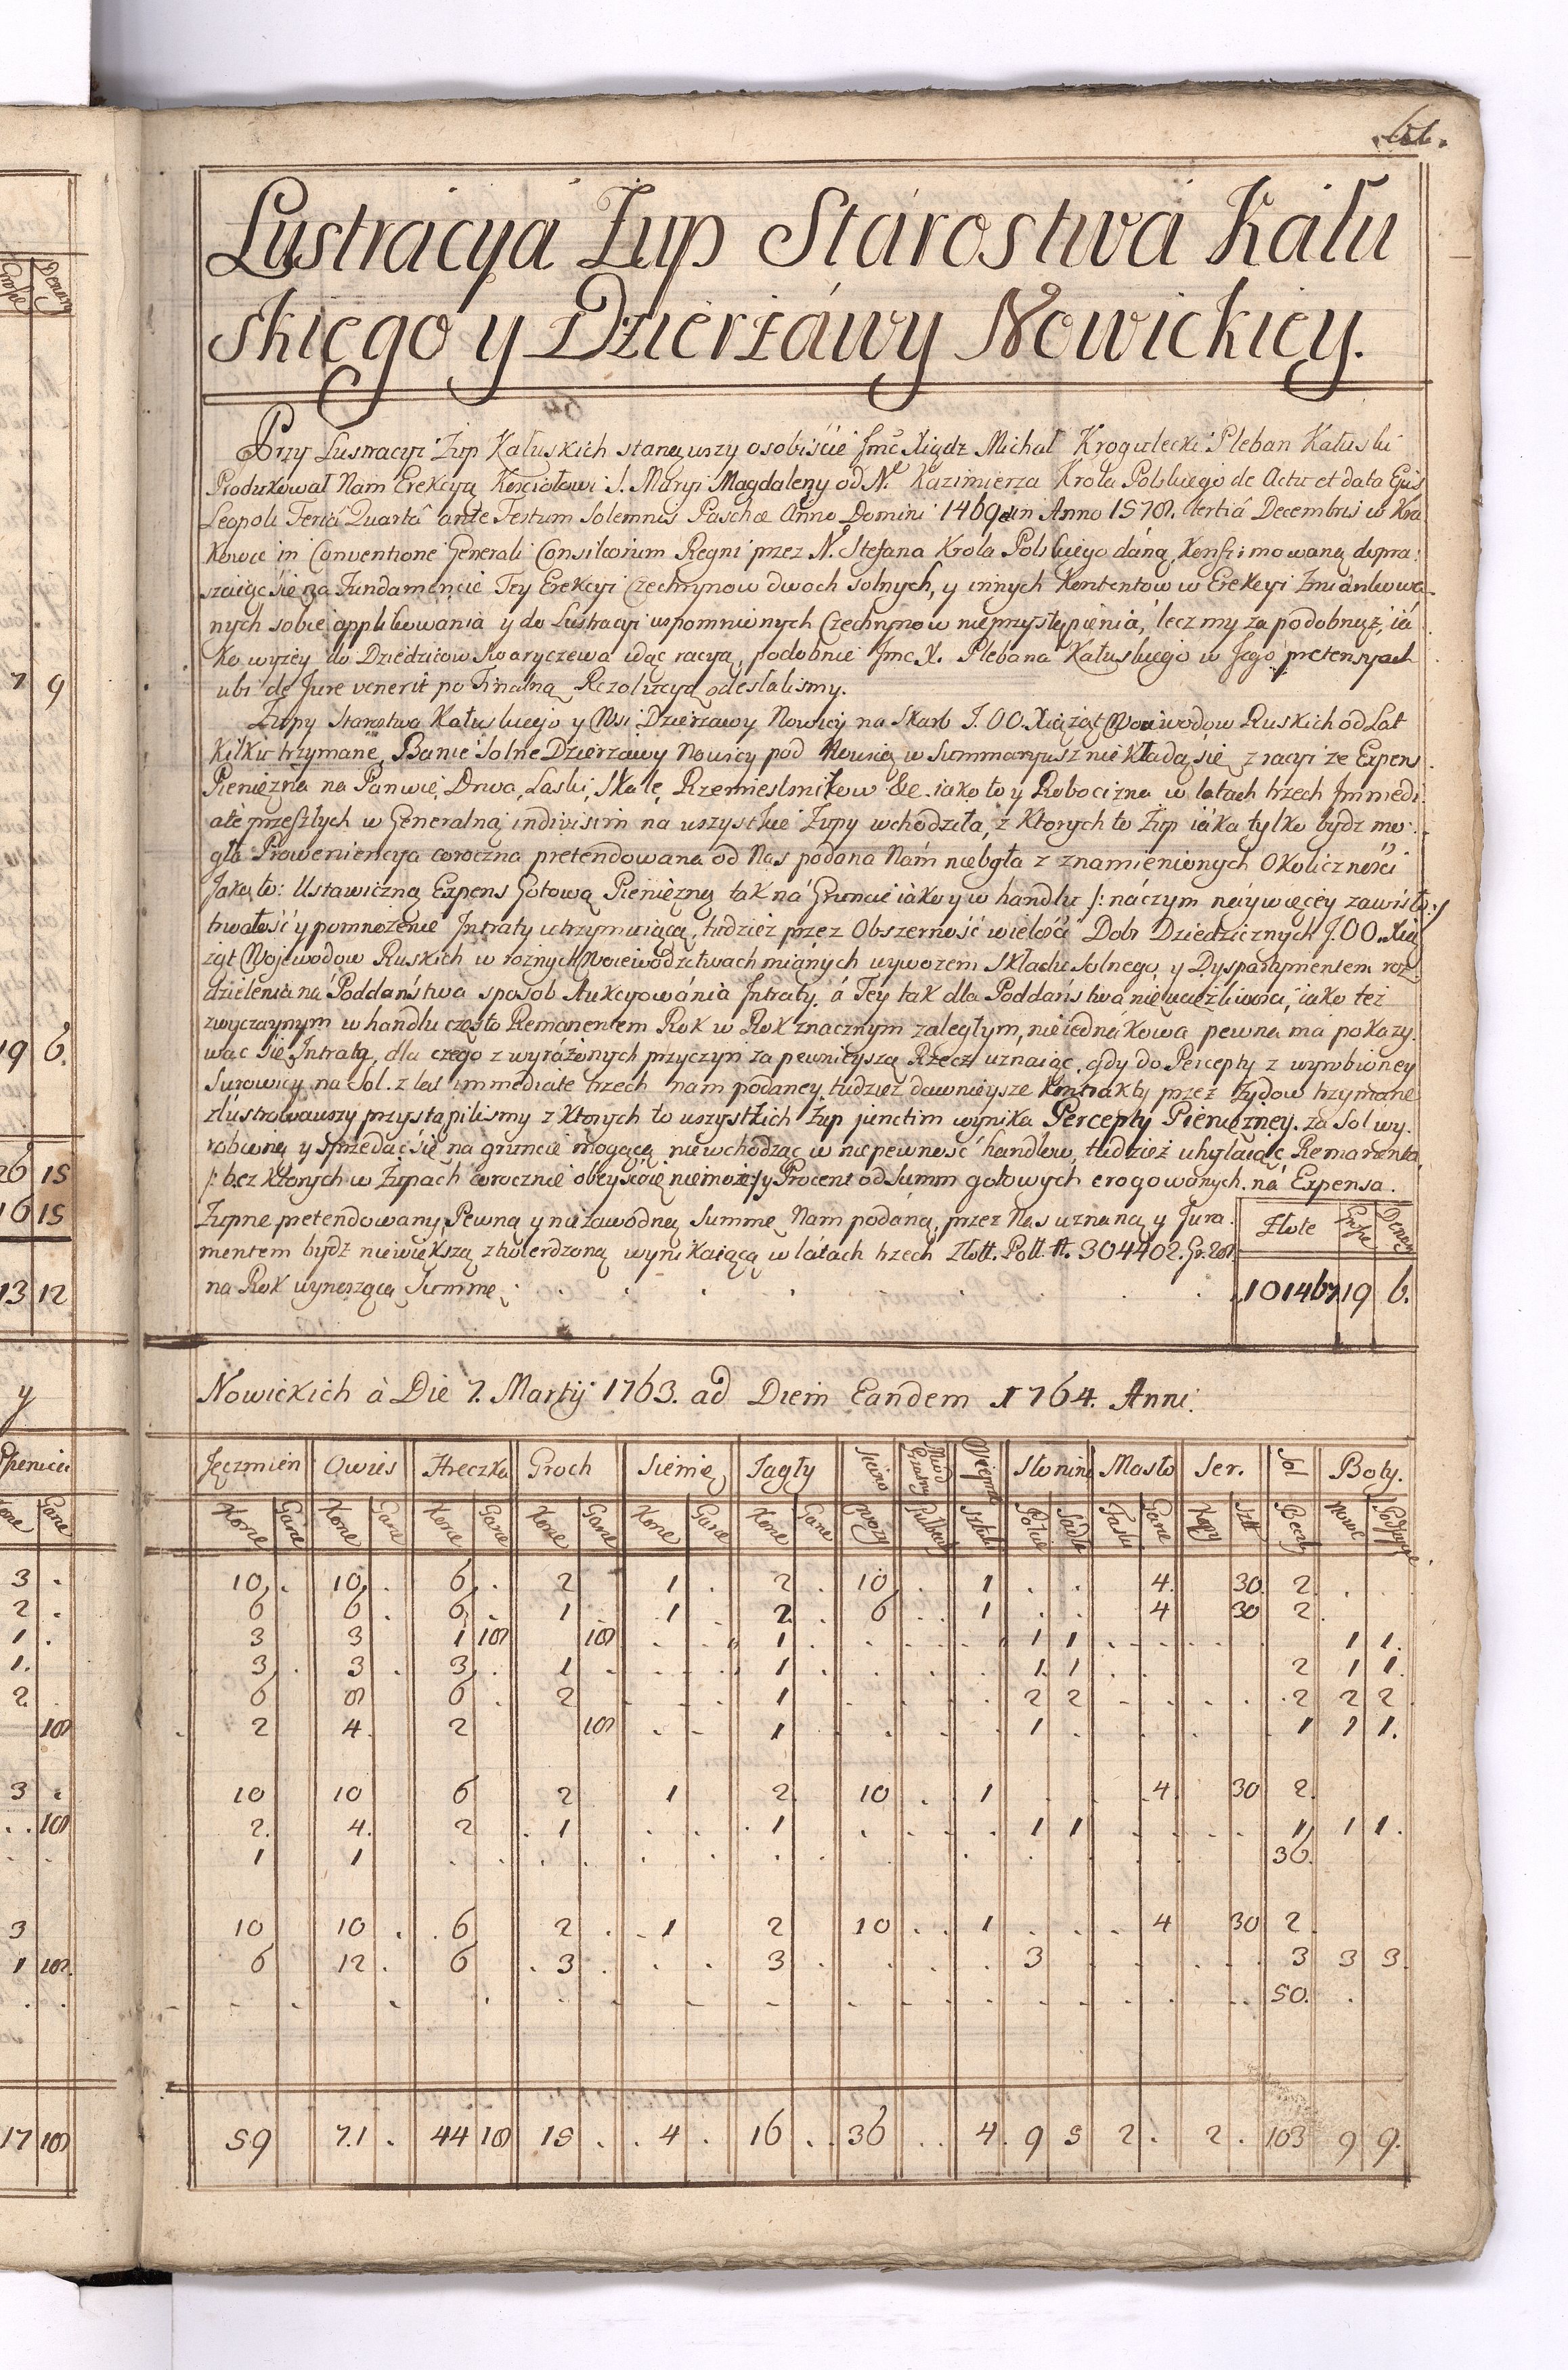 Lustracya Żup Starostwa Kału
skiego y Dzierżawy Nowickiey.
Przy Lustracyi Żup Kałuskich stanąwszy osobiście Jmć Xiądz Michał Krogulecki Pleban Kałuski
Produkował Nam Erekcyą Kościołowi S. Maryi Magdaleny od N. Kazimierza Krola Polskiego de Actu et data Ejus
Leopoli Feria Quarta ante Festum Solemnis Paschæ Anno Domini 1469 in Anno 1578. tertia Decembris w Kra
kowie in Conventione Generali Consiliorum Regni przez N. Stefana Krola Polskiego daną, Konfirmowaną dopra:
szaiąc się na Fundamencie Tey Erekcyi Czechrynow dwoch solnych, y innych Kontentow w Erekcyi Zmiankowa
nych sobie applikowania y do Lustracyi wspomnionych Czechrynow nieprzystąpienia, lecz my za podobnąż, ia
ko wyżey do Dziedzicow Swaryczewa idąc racyą, podobnie Jmc X. Plebana Kałuskiego w Jego pretensyach
ubi de Jure venerit po Finalną Rezolucyą odesłalismy.
Żupy Starostwa Kałuskiego y Wsi Dzierżawy Nowicy na Skarb J.OO. Xiążąt Woiewodow Ruskich od Lat
kilku trzymane, Banie Solne Dzierżawy Nowicy pod Nowicą w Summaryusz nie kładą się z racyi że Expens
Pieniężna na Panwie, Drwa, Laski, Skale, Rzemieslnikow &c. iako to y Robocizna w latach trzech Immedi
ate przeszłych w Generalną indivisim na wszystkie Żupy wchodziła, z ktorych to Żup iaka tylko bydz mo
gła Proweniencya coroczna pretendowana od Nas podana Nam niebyła z znamienionych Okoliczności
Jako to: Ustawiczną Expens Gotową Pieniężną tak na Gruncie iako y w handlu /: na czym naywięcey zawisło :/
trwałość y pomnożenie Intraty utrzymuiącą, tudzież przez Obszerność wielość Dobr Dziedzicznych J.OO. Xią
żąt Wojewodow Ruskich w rożnych Woiewodztwach mianych wywozem Składu Solnego, y Dyspartymentem roz
dzielenia na Poddaństwa sposob Aukcyowania Intraty. a Tey tak dla Poddaństwa nieuciążliwości, iako też
zwyczaynym w handlu często Remanentem Rok w Rok znacznym zaległym, nieiednakowa pewna ma pokazy
wac się Intrata, dla czego z wyrażonych przyczyn za pewnieyszą Rzecz uznaiąc, gdy do Percepty z wyrobioney
Surowicy na Sol. z lat immediate trzech nam podaney, tudziez dawnieysze Kontrakty przez Żydow trzymane
zlustrowawszy przystąpilismy z ktorych to wszystkich Żup junctim wynika Percepty Pieniężney. za Sol wy.
robioną y sprzedać się na gruncie mogącą niewchodząc w niepewność handlow, tudzież uchylaiąc Remanenta
/: bez ktorych w Żupach corocznie obeyść się niemoże :/ y Procent od Summ gotowych erogowanych na Expensa.
Żupne pretendowany Pewną y niezawodną Summę Nam podaną, przez Nas uznaną y Jura
mentem bydź niewiększą ztwierdzoną wynikaiącą w latach trzech Złott. Poll. tt. 304402.
na Rok wynoszącą Summę
Złote Grosze Denary
101467 19 6.
Nowickich à Die 7. Martij 1763. ad Diem Eandem 1764. Anni.
Jęczmień Owies Hreczka Groch Siemię Jagły Siano Słonina Masło Ser. Sol Boty.
Korce Garce Korce Garce Korce Garce Korce Garce Korce Garce Korce Garce wozy Połcie Sadła Faski Garce Kopy Beczki Nowe
10 10 6 2 1 2 10 1 4 30 2
6 6 6 1 1 2 6 1 4 30 2
3 3 1 16 16 1 1 1 1 1
3 3 3 1 1 1 1 2 1 1
6 8 6 2 1 2 2 2 2 2
2 4 2 16 1 1 1 1 1
10 10 6 2 1 2 10 1 4 30 2
2 4 2 1 1 1 1 1 1 1
1 1 36
10 10 6 2 1 2 10 1 4 30 2
6 12 6 3 3 3 3 3 3
50
59 71 44 16 15 4 16 36 4 9 5 2 2 103 9 9